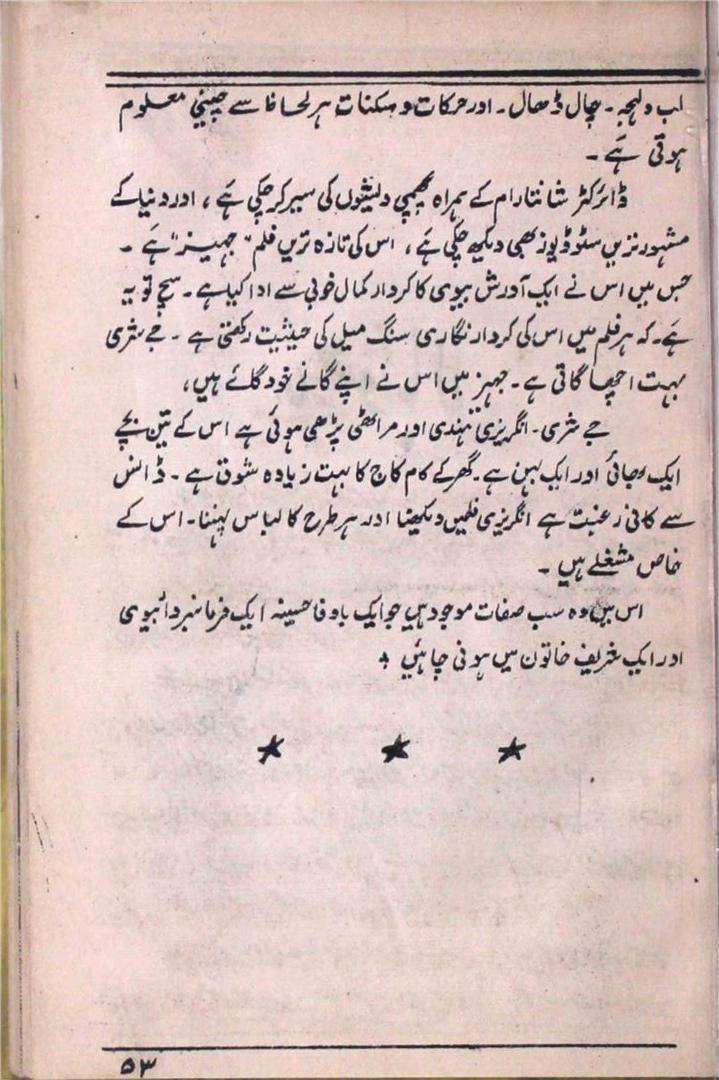 لب ولہجہ ۔ چال ڈھال ۔ اور حرکات و سکنات ہر لحاظ سے چینی معلوم
ہوتی ہَے ۔
ڈائرکٹر شانتارام کے ہمراہ پچھمی دیشوں کی سیر کر چکی ہَے ، اور دنیا کے
مشہور ترین سٹوڈیوز بھی دیکھ چکی ہَے ، اس کی تازہ ترین فلم "جہیز" ہے ۔
جس میں اس نے ایک آدرش بیوی کا کردار کمال خوبی سے ادا کیا ہے ۔ سچ تو یہ
ہَے ۔ کہ ہر فلم میں اس کی کردار نگاری سنگ میل کی حیثیت رکھتی ہے ۔ جے شری
بہت اچھا گاتی ہے ۔ جہیز میں اس نے اپنے گانے خود گائے ہیں ،
جے شری ۔ انگریزی ہندی اور مراٹھی پڑھی ہوئی ہے اس کے تین بچے
ایک بھائی اور ایک بہن ہے ۔ گھر کے کام کاج کا بہت زیادہ شوق ہے ۔ ڈانس
سے کافی رغبت ہے انگریزی فلمیں دیکھنا اور ہر طرح کا لباس پہننا ۔ اس کے
خاص مشغلے ہیں ۔
اس میں وہ سب صفات موجود ہیں جو ایک باوفا حسینہ ایک فرمانبردار بیوی
اور ایک شریف خاتون میں ہونی چاہئیں
★ ★ ★
۵۳